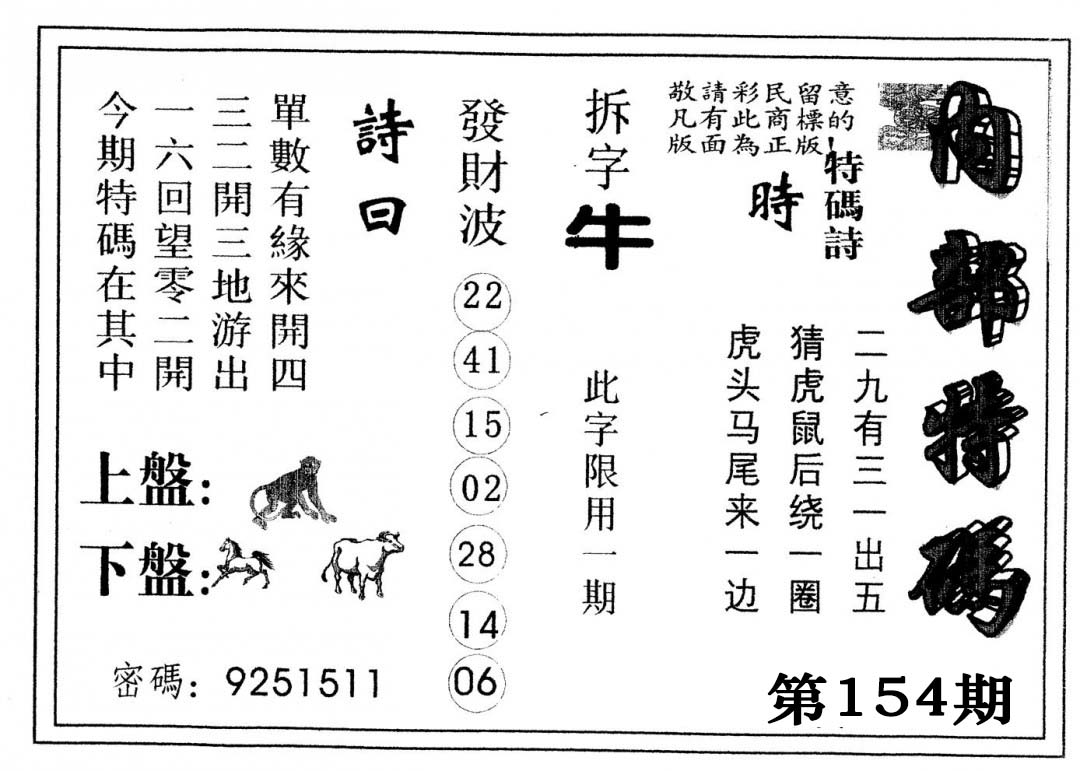 內部特碼
第154期
敬請彩民留意
凡有此商標的
版面為正版!
特碼詩
時
二九有三一出五
猜虎鼠后绕一圈
虎头马尾来一边
拆字
牛
此字限用一期
發財波
22
41
15
02
28
14
06
詩曰
單數有緣來開四
三二開三地游出
一六回望零二開
今期特碼在其中
上盤:
下盤:
密碼: 9251511